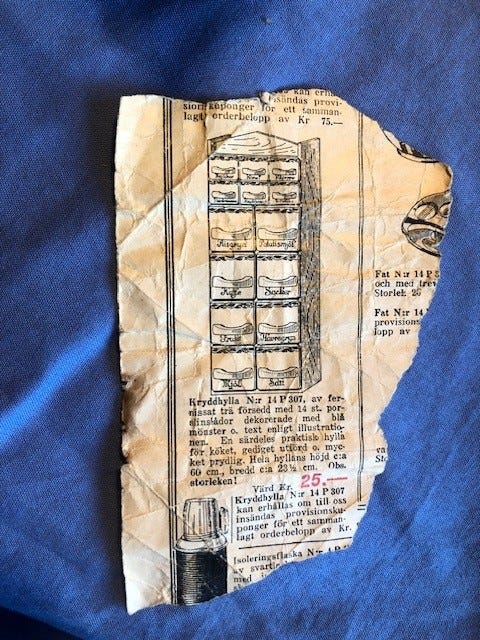 kan erhå
sionskuponger insändas provi-
för ett samman-
lagt orderbelopp av Kr 75.—
Risgryn Potatismjöl
Kaffe Socker
Havregryn
Mjöl Salt
Kryddhylla N:r 14 P 307, av fer-
nissat trä försedd med 14 st. por-
slinslådor dekorerade med blå
mönster o. text enligt illustratio-
nen. En särdeles praktisk hylla
för köket, gediget utförd o. myc-
ket prydlig. Hela hyllans höjd c:a
60 cm., bredd c:a 23½ cm. Obs.
storleken!
Värd Kr. 25.—
Kryddhylla N:r 14 P 307
kan erhållas om till oss
insändas provisionsku-
ponger för ett samman-
lagt orderbelopp av Kr.
Isoleringsflaska N:r 4 P
av svart
med
Fat N:r 14 P 3
och med tre
Storlek 26
Fat N:r 14
provisions
lopp av